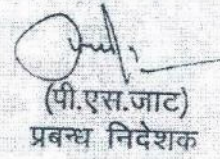 (पी.एस.जाट)
प्रबन्ध निदेशक